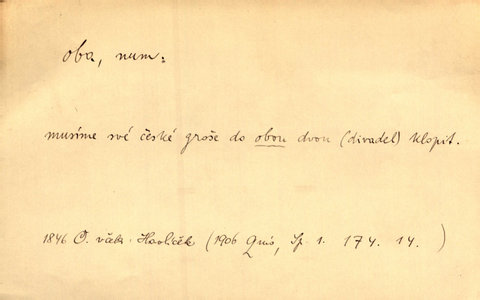 oba, num.
musíme své české groše do obou dvou (divadel) klopit.
1846 Č. včela. Havlíček (1906 Quis, Sp. 1. 174. 14. )